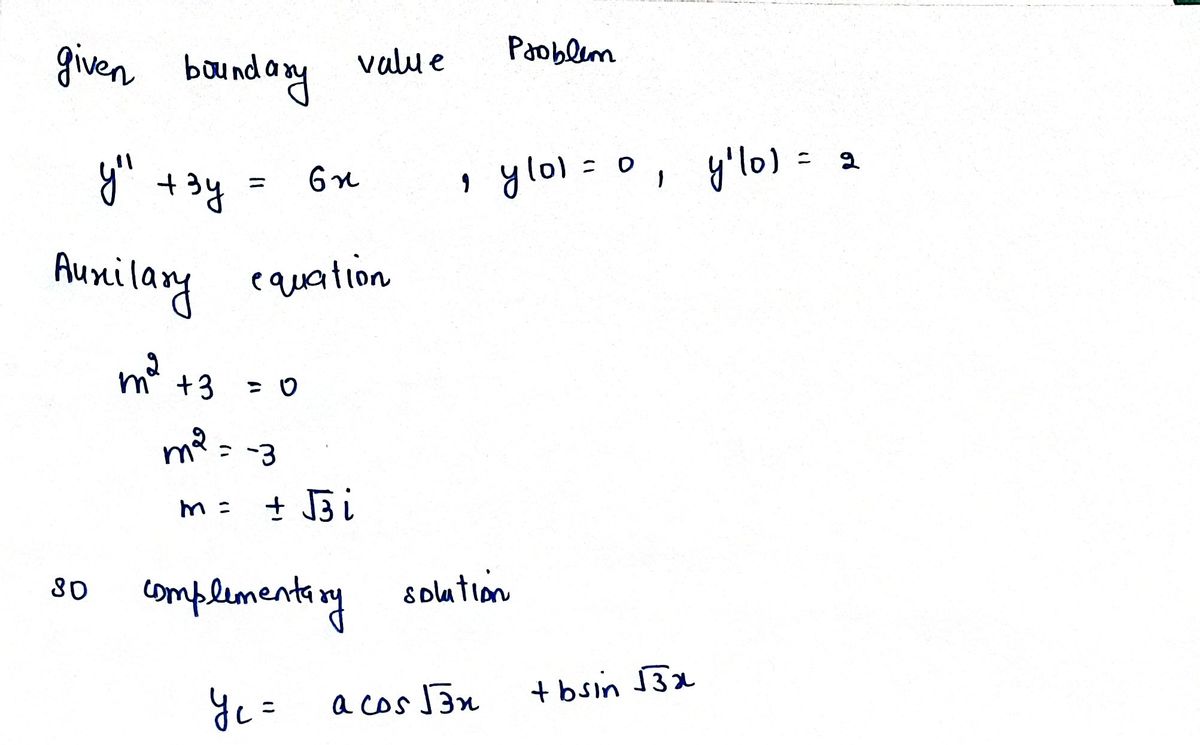 given boundary value Problem
y'' + 3y = 6x , y(0) = 0, y'(0) = 2
Auxilary equation
m² + 3 = 0
m² = -3
m = ± √3 i
so complementary solution
yc = a cos √3x + b sin √3x